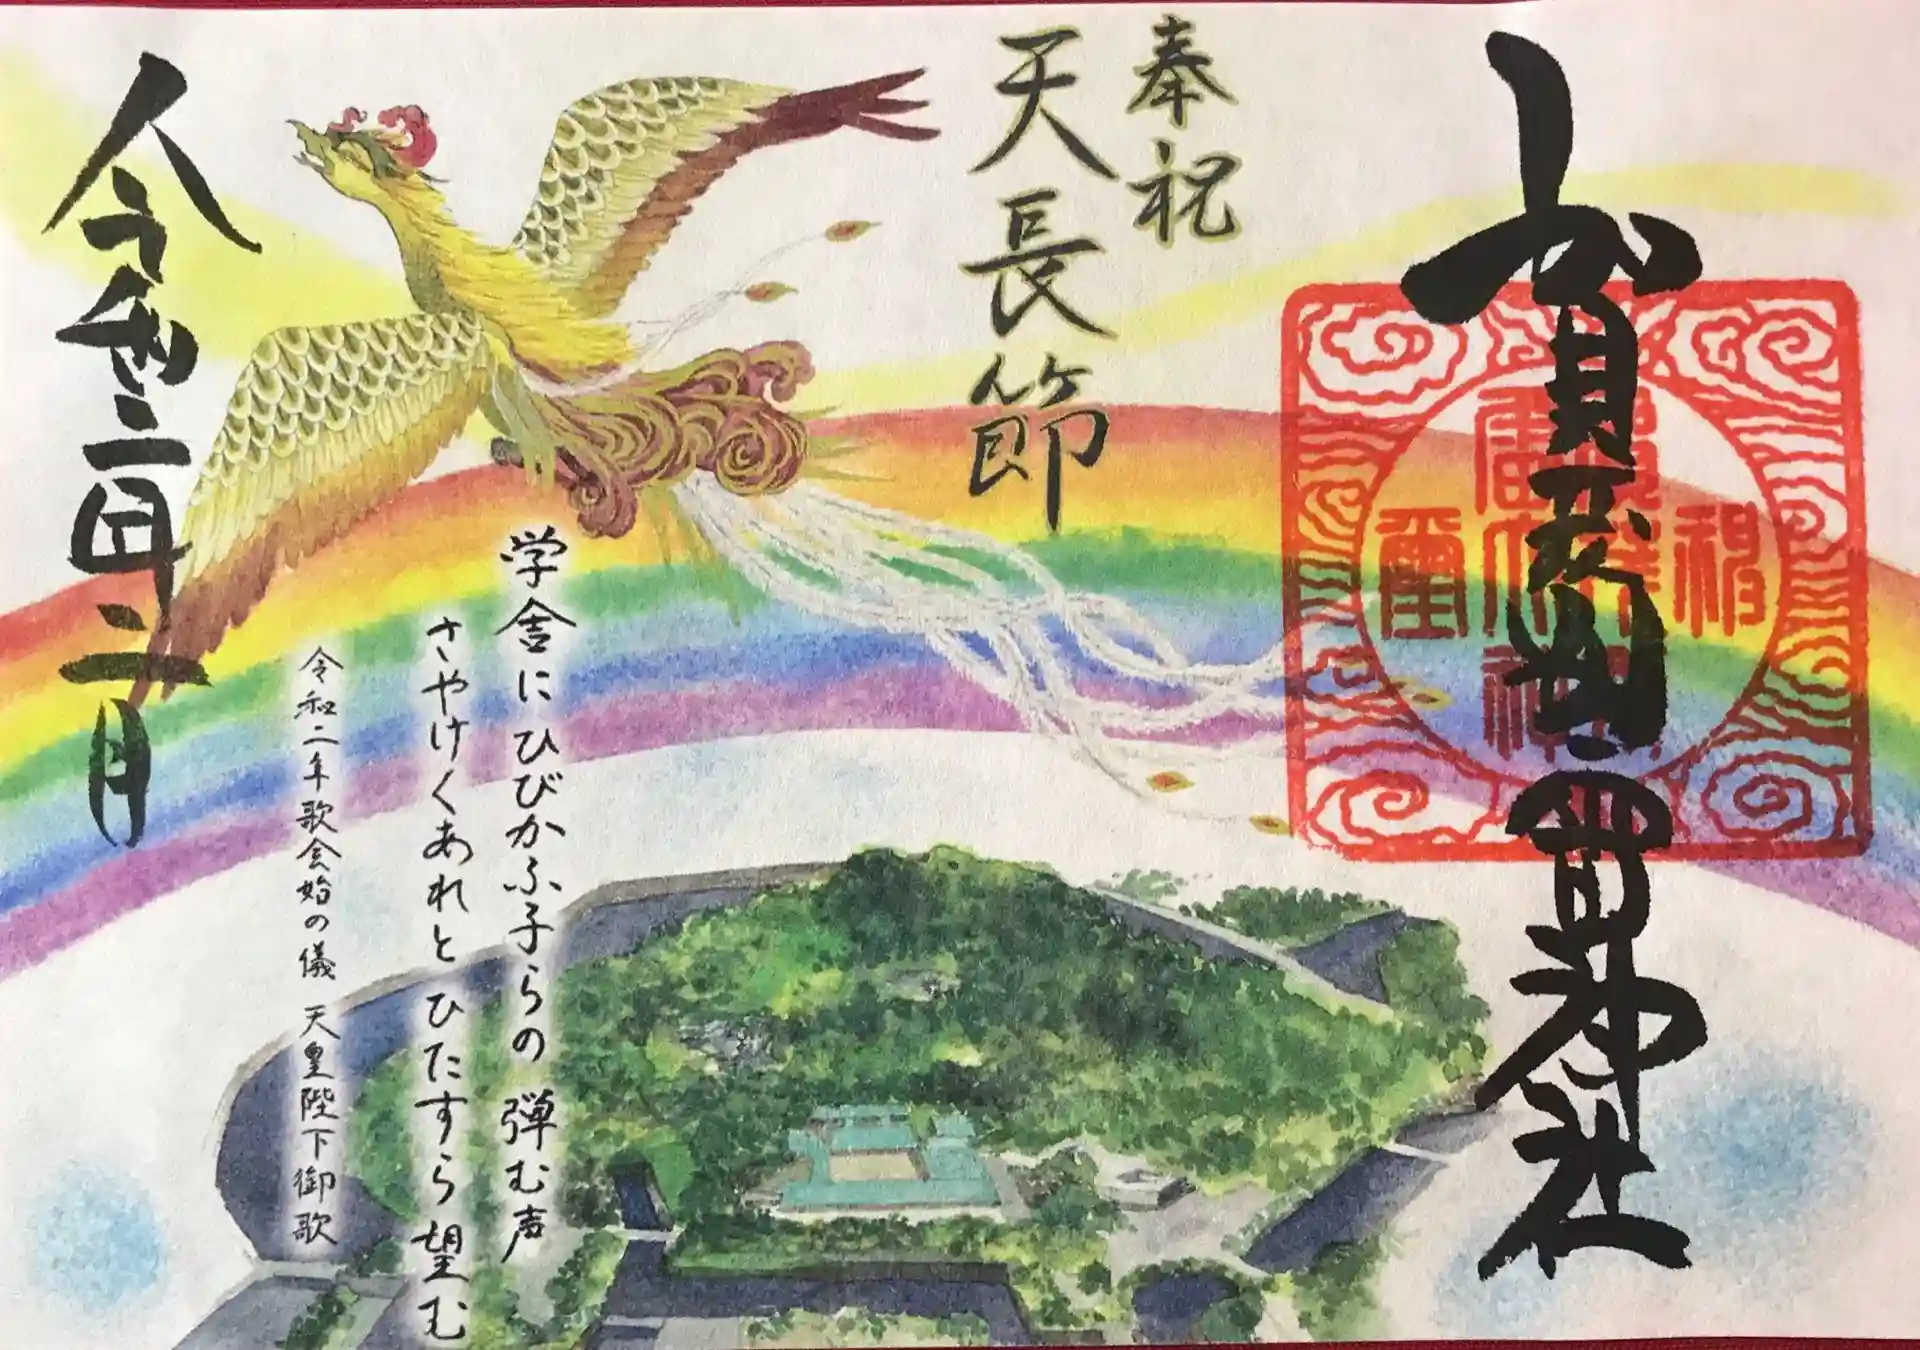 賀茂別雷神社
奉祝
天長節
学舎にひびかふ子らの 弾む声
さやけくあれと ひたすら望む
令和二年歌会始の儀 天皇陛下御歌
令和二年二月